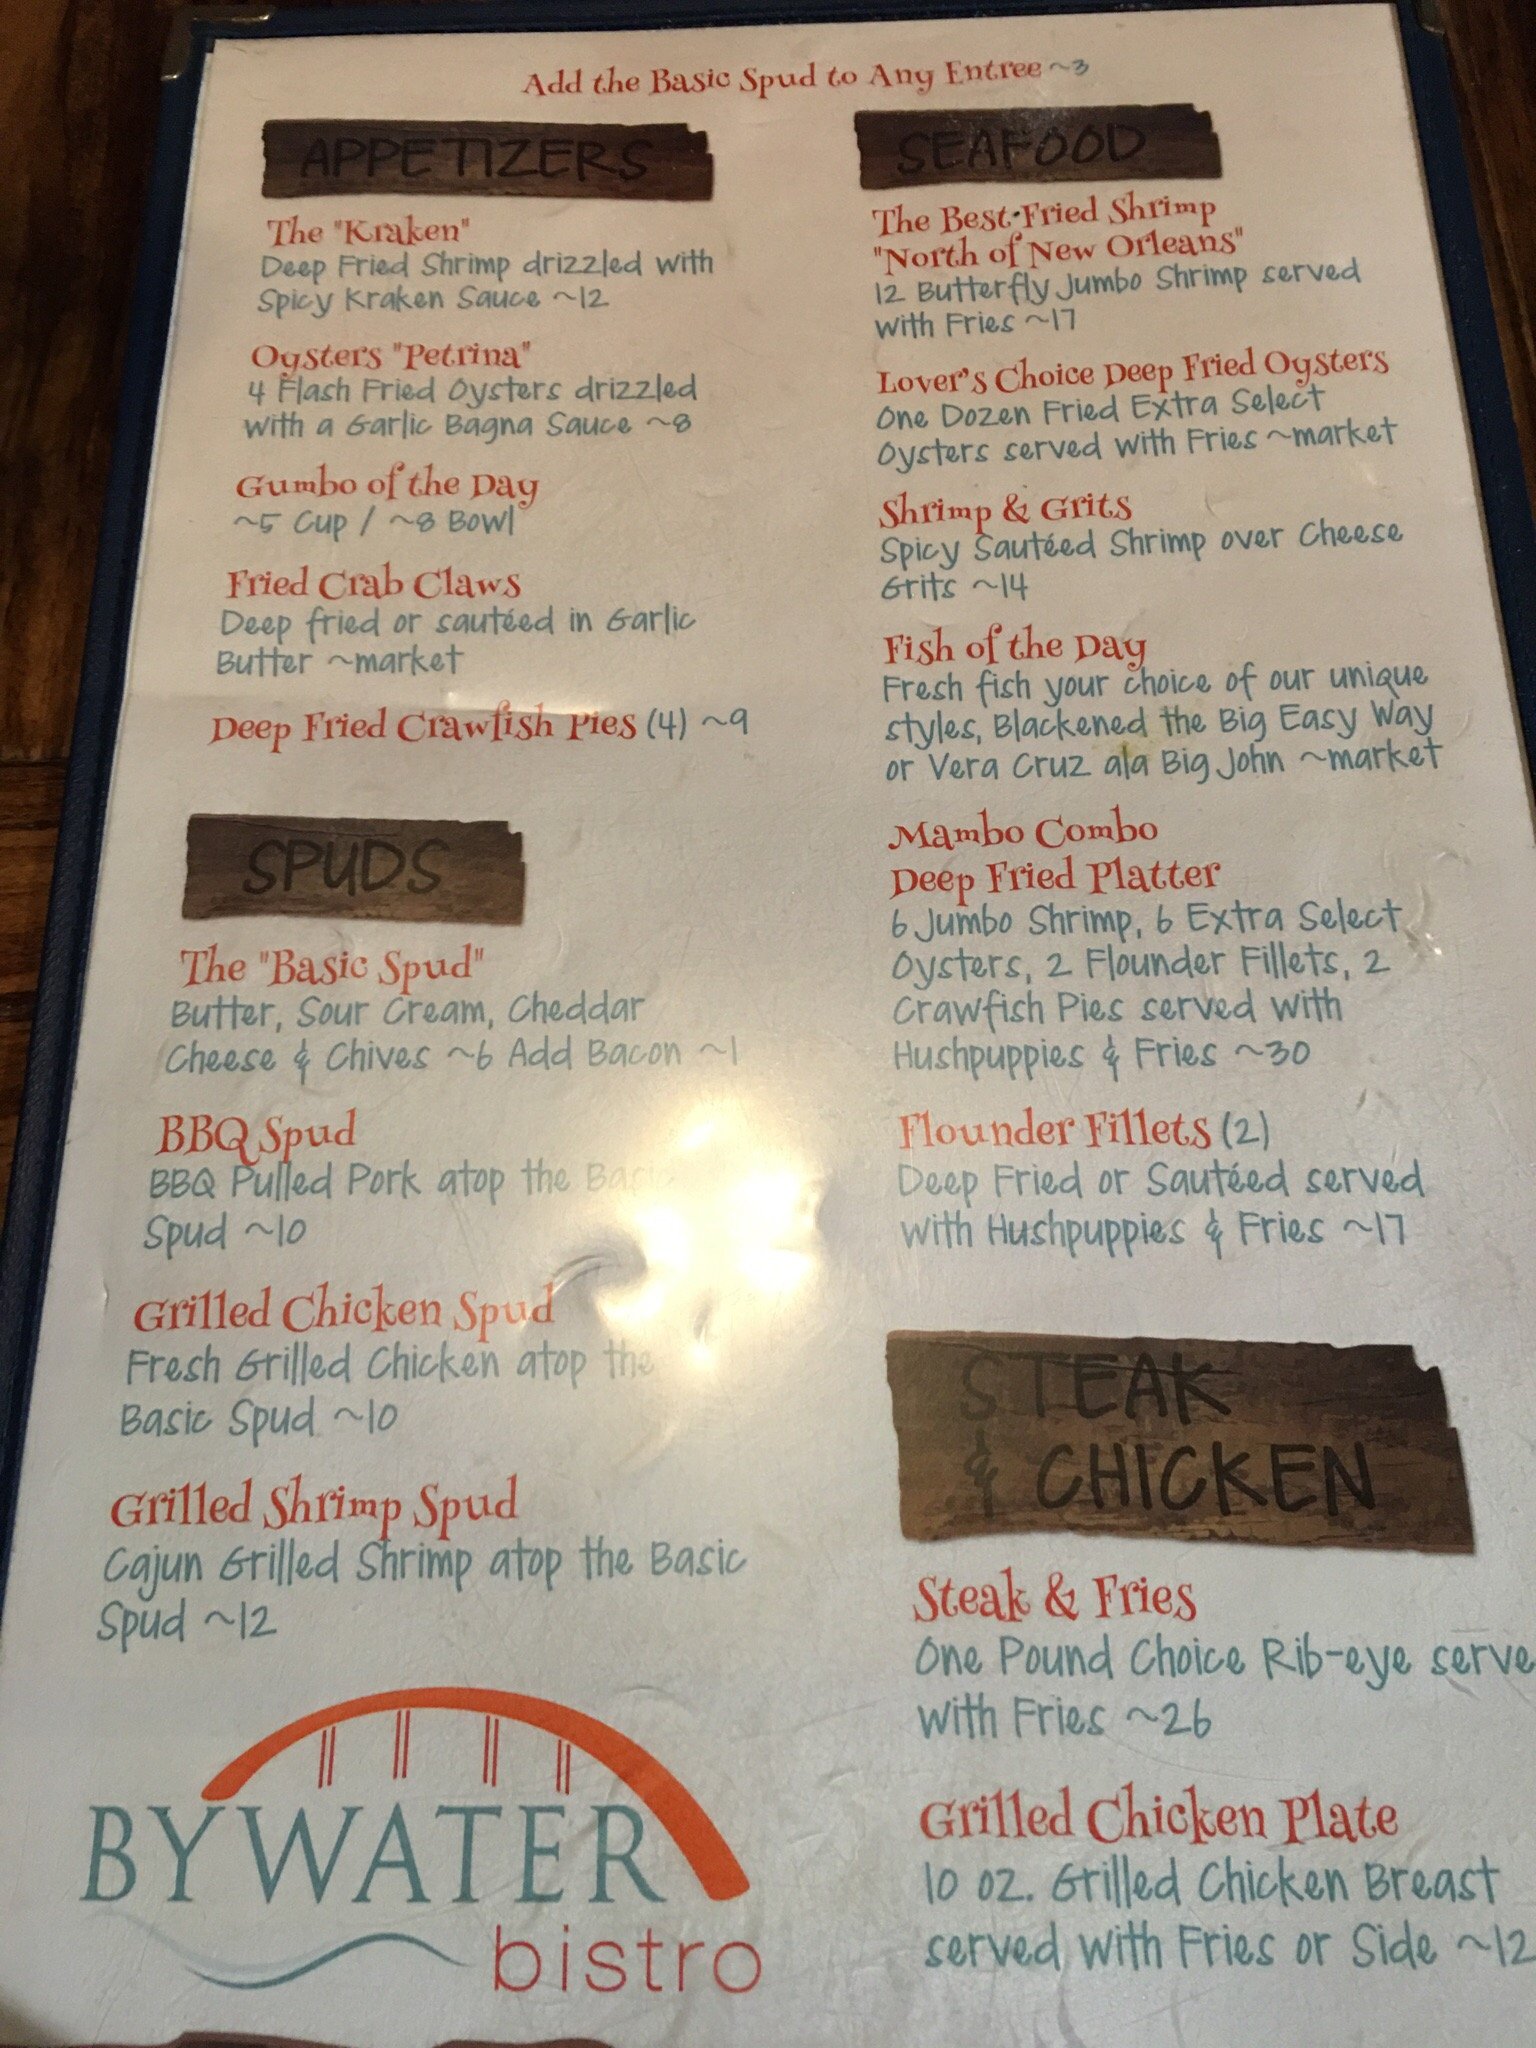 Add the Basic Spud to Any Entree ~3
APPETIZERS
The "Kraken"
Deep Fried Shrimp drizzled with
Spicy Kraken Sauce ~12
Oysters "Petrina"
4 Flash Fried Oysters drizzled
with a Garlic Bagna Sauce ~8
Gumbo of the Day
~5 Cup / ~8 Bowl
Fried Crab Claws
Deep fried or sautéed in Garlic
Butter ~market
Deep Fried Crawfish Pies (4) ~9
SPUDS
The "Basic Spud"
Butter, Sour Cream, Cheddar
Cheese & Chives ~6 Add Bacon ~1
BBQ Spud
BBQ Pulled Pork atop the Basic
Spud ~10
Grilled Chicken Spud
Fresh Grilled Chicken atop the
Basic Spud ~10
Grilled Shrimp Spud
Cajun Grilled Shrimp atop the Basic
Spud ~12
BYWATER
bistro
SEAFOOD
The Best Fried Shrimp
"North of New Orleans"
12 Butterfly Jumbo Shrimp served
with Fries ~17
Lover's Choice Deep Fried Oysters
One Dozen Fried Extra Select
Oysters served with Fries ~market
Shrimp & Grits
Spicy Sautéed Shrimp over Cheese
Grits ~14
Fish of the Day
Fresh fish your choice of our unique
styles, Blackened the Big Easy Way
or Vera Cruz ala Big John ~market
Mambo Combo
Deep Fried Platter
6 Jumbo Shrimp, 6 Extra Select
Oysters, 2 Flounder Fillets, 2
Crawfish Pies served with
Hushpuppies & Fries ~30
Flounder Fillets (2)
Deep Fried or Sautéed served
with Hushpuppies & Fries ~17
STEAK
& CHICKEN
Steak & Fries
One Pound Choice Rib-eye serve
with Fries ~26
Grilled Chicken Plate
10 oz. Grilled Chicken Breast
served with Fries or Side ~12